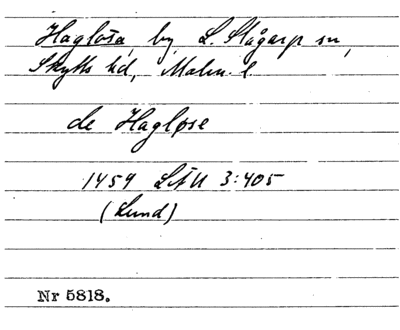 Haglösa, by, L. Slågarp sn,
Skytts hd, Malm. l.
de Hagløse
1459 LÄU 3:405
(Lund)
Nr 5818.